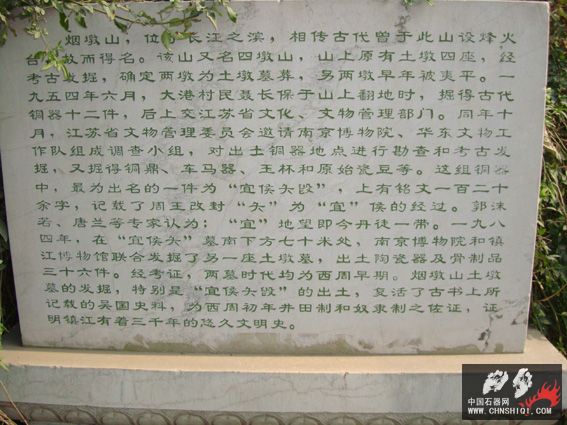 烟墩山，位于长江之滨，相传古代曾于此山设烽火
台，故而得名。该山又名四墩山，山上原有土墩四座，经
考古发掘，确定两墩为土墩墓葬，另两墩早年被夷平。一
九五四年六月，大港村民聂长保于山上翻地时，掘得古代
铜器十二件，后上交江苏省文化、文物管理部门。同年十
月，江苏省文物管理委员会邀请南京博物院、华东文物工
作队组成调查小组，对出土铜器地点进行勘查和考古发
掘，又掘得铜鼎、车马器、玉杯和原始瓷豆等。这组铜器
中，最为出名的一件为“宜侯夨𣪘”，上有铭文一百二十
余字，记载了周王改封“夨”为“宜”侯的经过。郭沫
若、唐兰等专家认为：“宜”地望即今丹徒一带。一九八
四年，在“宜侯夨”墓南下方七十米处，南京博物院和镇
江博物馆联合发掘了另一座土墩墓，出土陶瓷器及骨制品
三十六件。经考证，两墓时代均为西周早期。烟墩山土墩
墓的发掘，特别是“宜侯夨𣪘”的出土，复活了古书上所
记载的吴国史料，为西周初年井田制和奴隶制之佐证，证
明镇江有着三千年的悠久文明史。
中国石器网
WWW.CHNSHIQI.COM